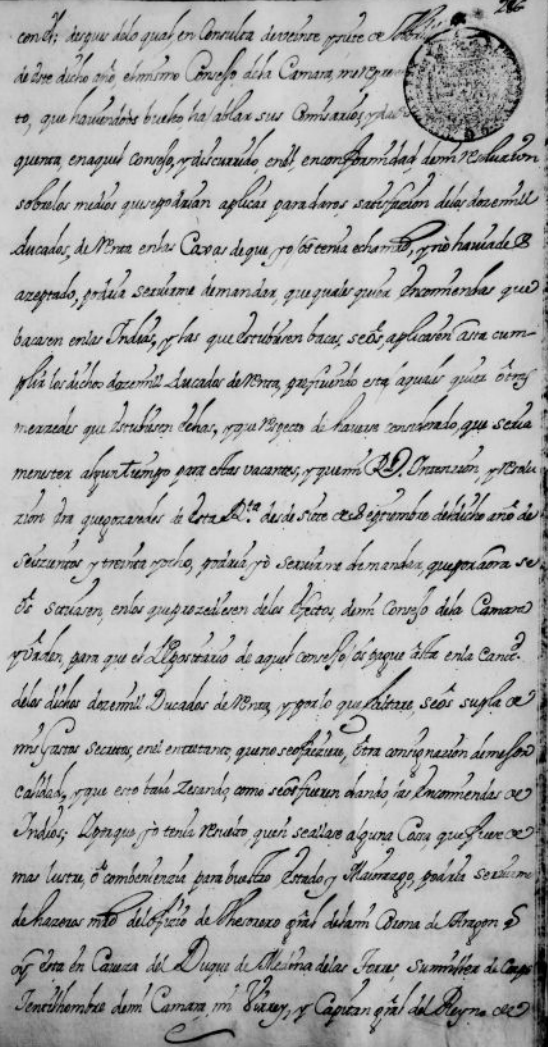 286
con él; despues de lo qual, en Consulta de veinte y siete de
de este dicho año, el mismo Consejo de la Camara, me repre
to, que haviendoos buelto, ha hablar sus Comisarios, y dado
quenta, en aquel consejo, y discurrido en él, en conformidad, de mi resoluzion
sobre los medios que se podrian aplicar para daros satisfazion de los doze mill
Ducados, de Renta en las Casas de que, yo os tenia echa mrd, y no haviades
azeptado, podria servirme de mandar, que quales quiera Encomiendas que
bacasen en las Indias, y las que estubiesen bacas, se os, aplicasen asta cum-
plir los dichos doze mill Ducados de Renta, prefiriendo esta, a quales quiera otras
merzedes que estubiesen echas, y que respecto de haverse considerado, que seria
menester algun tiempo para estas vacantes, y que mi Rl. Intenzion, y resolu
zion era que gozasedes de esta Rta. desde siete de Septiembre del dicho año de
seiszientos y treinta y ocho, podria yo servirme de mandar, que por aora se
os situasen, en los que prozediesen de los efectos, de mi Consejo de la Camara
y orden, para que el Depositario de aquel consejo, os pague asta en la cant.
de los dichos doze mill Ducados de Renta, y por lo que faltare, se os supla de
mis Gastos Secretos, en el entretanto, que no se ofreziere, otra consignazion de mejor
calidad, y que esto baia zesando, como se os fueren dando, las Encomiendas de
Indias; Y porque yo tenia resuelto, que si se allase alguna Cosa, que fuere de
mas lustre, o combenienzia para buestro estado y Maiorazgo, podria servirme
de hazeros mrd del ofizio de Thesorero gral de la mi Corona de Aragon q
oy esta en Caveza del Duque de Medina de las Torres, sumiller de Corps
Jentilhombre de mi Camara, mi Virrey, y Capitan gral del Reyno de